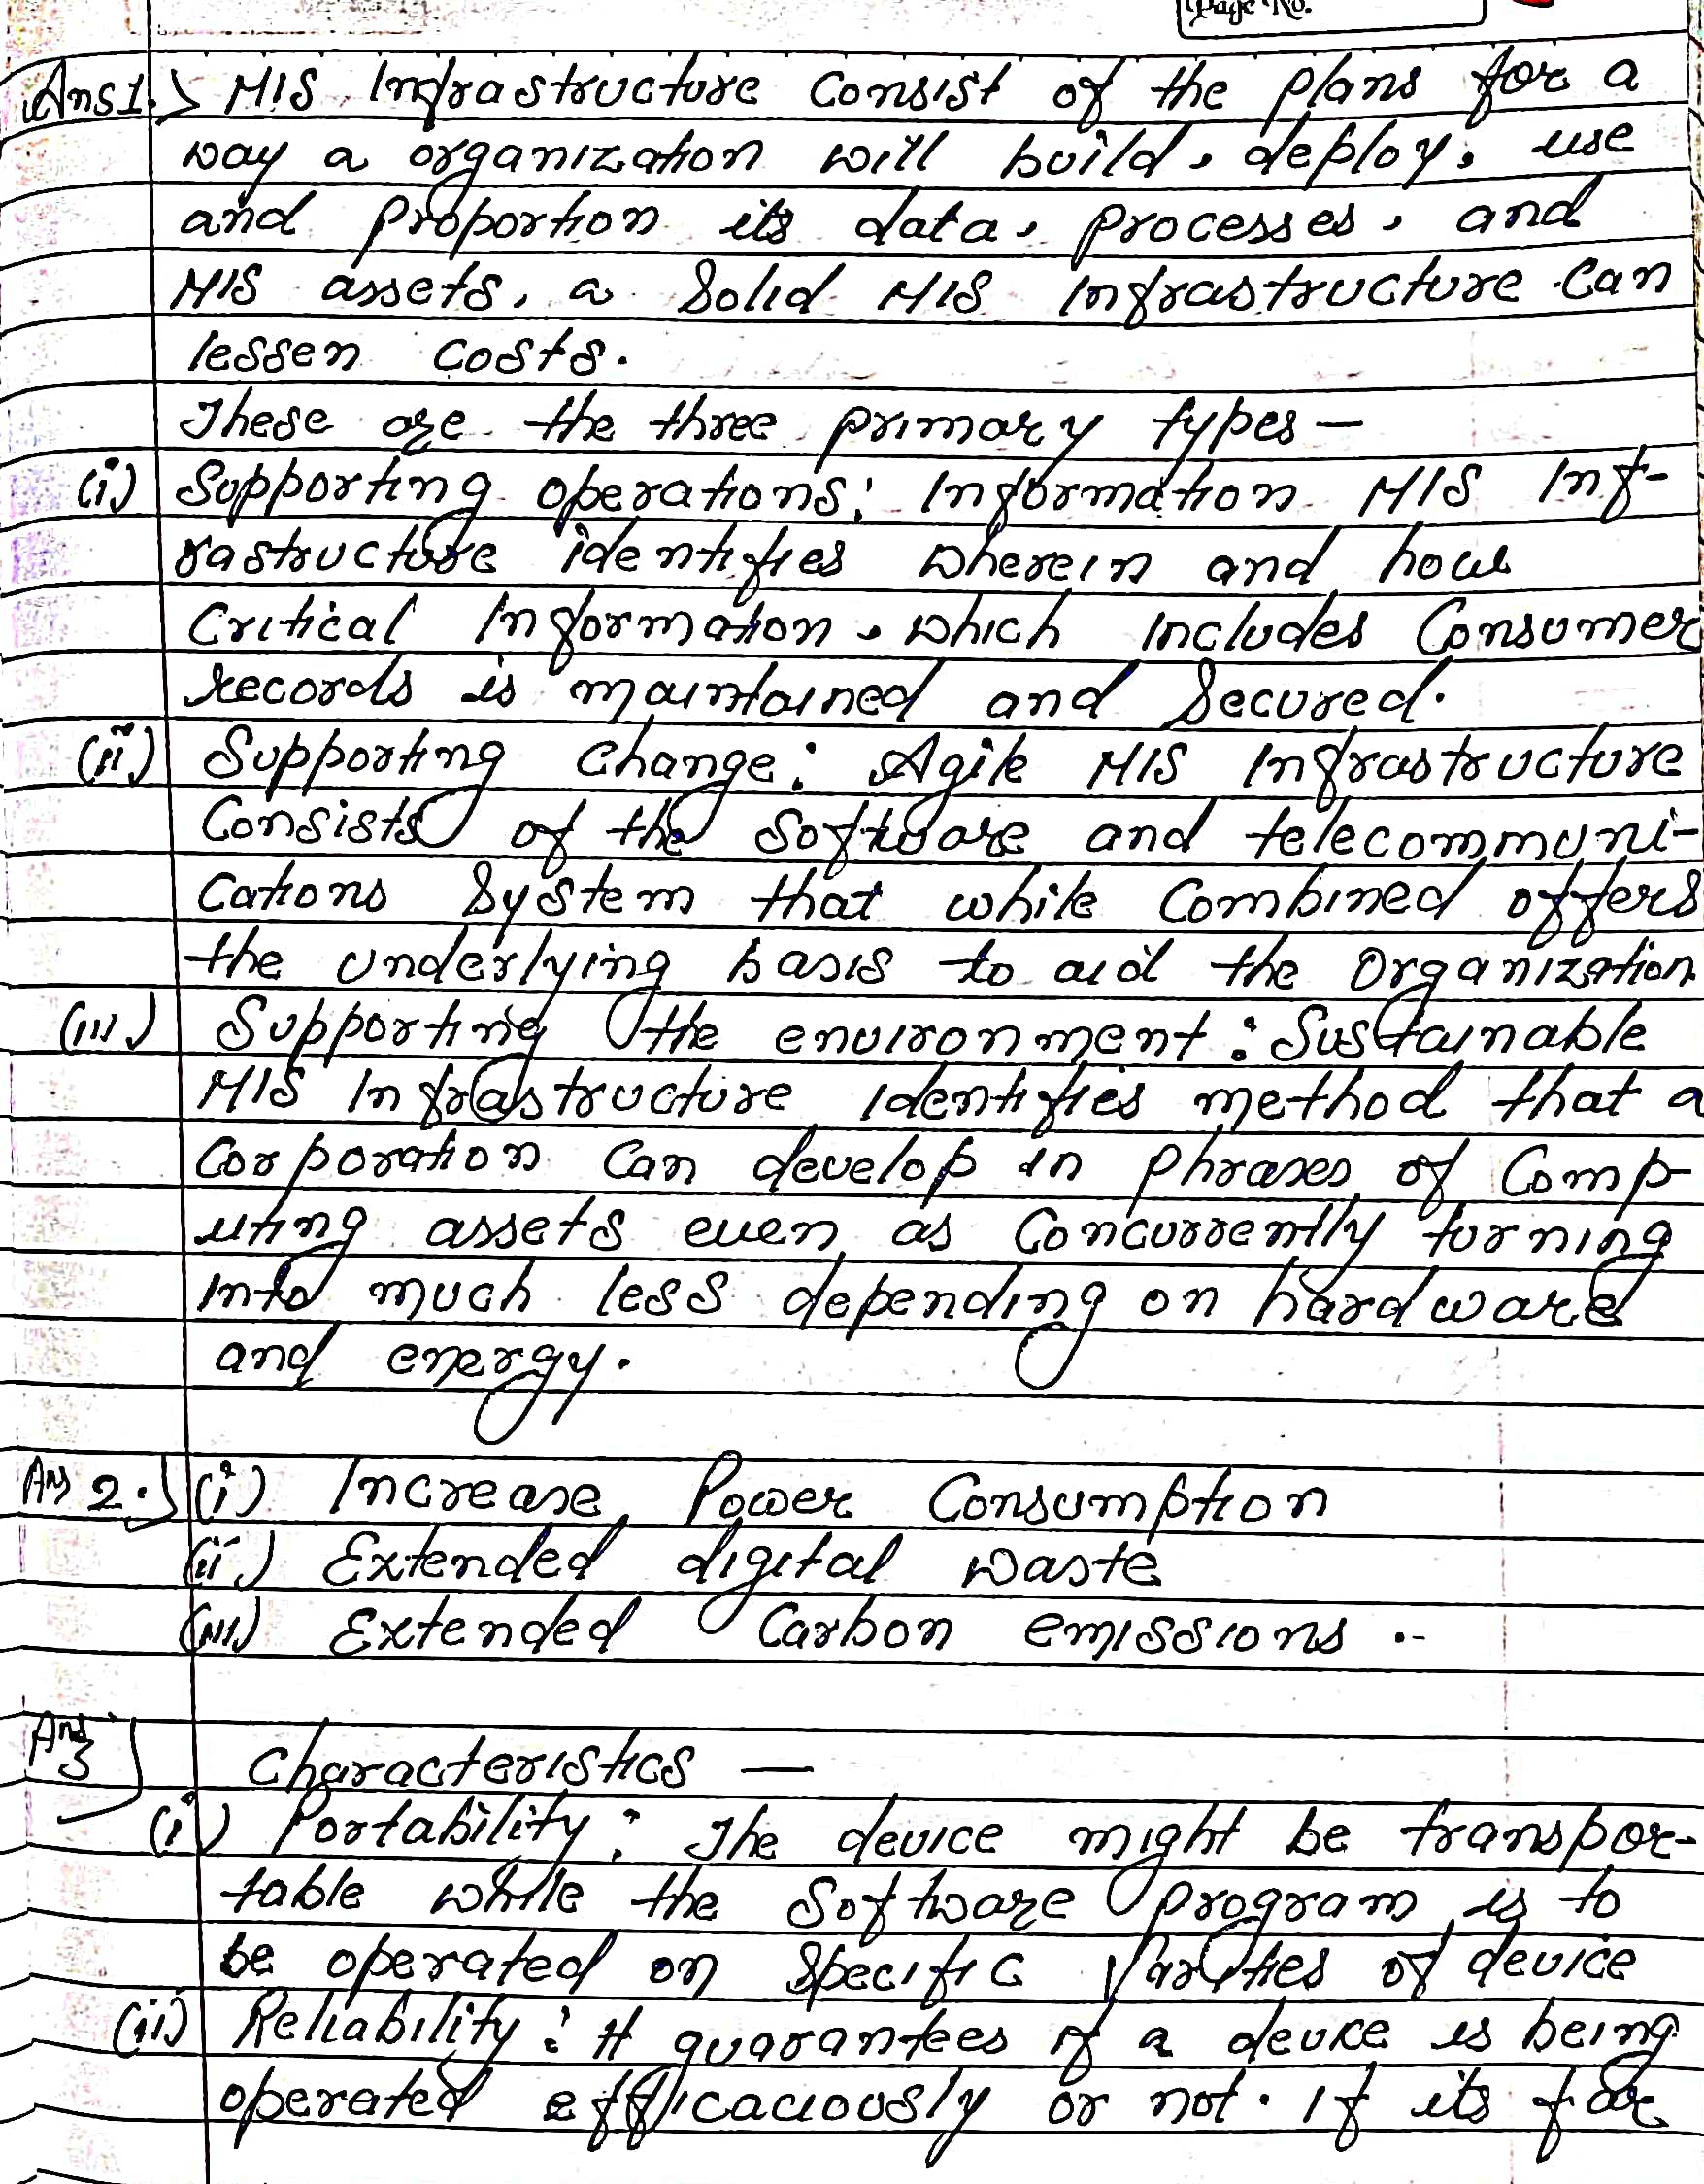 Page No.
Ans 1.> MIS Infrastructure Consist of the plans for a
way a organization will build, deploy, use
and proportion its data, processes, and
MIS assets, a Solid MIS Infrastructure Can
lessen costs.
These are the three primary types –
(i) Supporting operations: Information MIS Inf-
rastructure identifies wherein and how
Critical Information, which includes Consumer
records is maintained and Secured.
(ii) Supporting change: Agile MIS Infrastructure
Consists of the Software and telecommuni-
cations System that while Combined offers
the underlying basis to aid the Organization
(iii) Supporting the environment: Sustainable
MIS Infrastructure identifies method that a
Corporation Can develop in phrases of Comp-
uting assets even as Concurrently turning
into much less depending on hardware
and energy.
Ans 2.) (i) Increase Power Consumption
(ii) Extended digital waste
(iii) Extended Carbon emissions.
Ans 3) Characteristics —
(i) Portability: The device might be transpor-
table while the Software program is to
be operated on Specific Varities of device
(ii) Reliability: It guarantees if a device is being
operated efficaciously or not. If its far